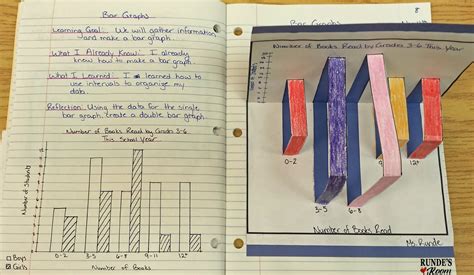 Bar Graphs
Learning Goal... We will gather information
and make a bar graph.
What I Already Know... I already
know how to make a bar graph.
What I Learned... I learned how to
use intervals to organize my
data.
Reflection: Using the data for the single
bar graph, create a double bar graph.
Number of Books Read by Grades 3-6
This School Year
Number of Students
0-2
3-5
6-8
9-11
12+
Boys
Girls
Number of Books
Bar Graphs
8
Number of Books Read by Grades 3-6 This Year
0-2
3-5
6-8
12+
Number of Books Read
Ms. Runde
RUNDE'S
Room